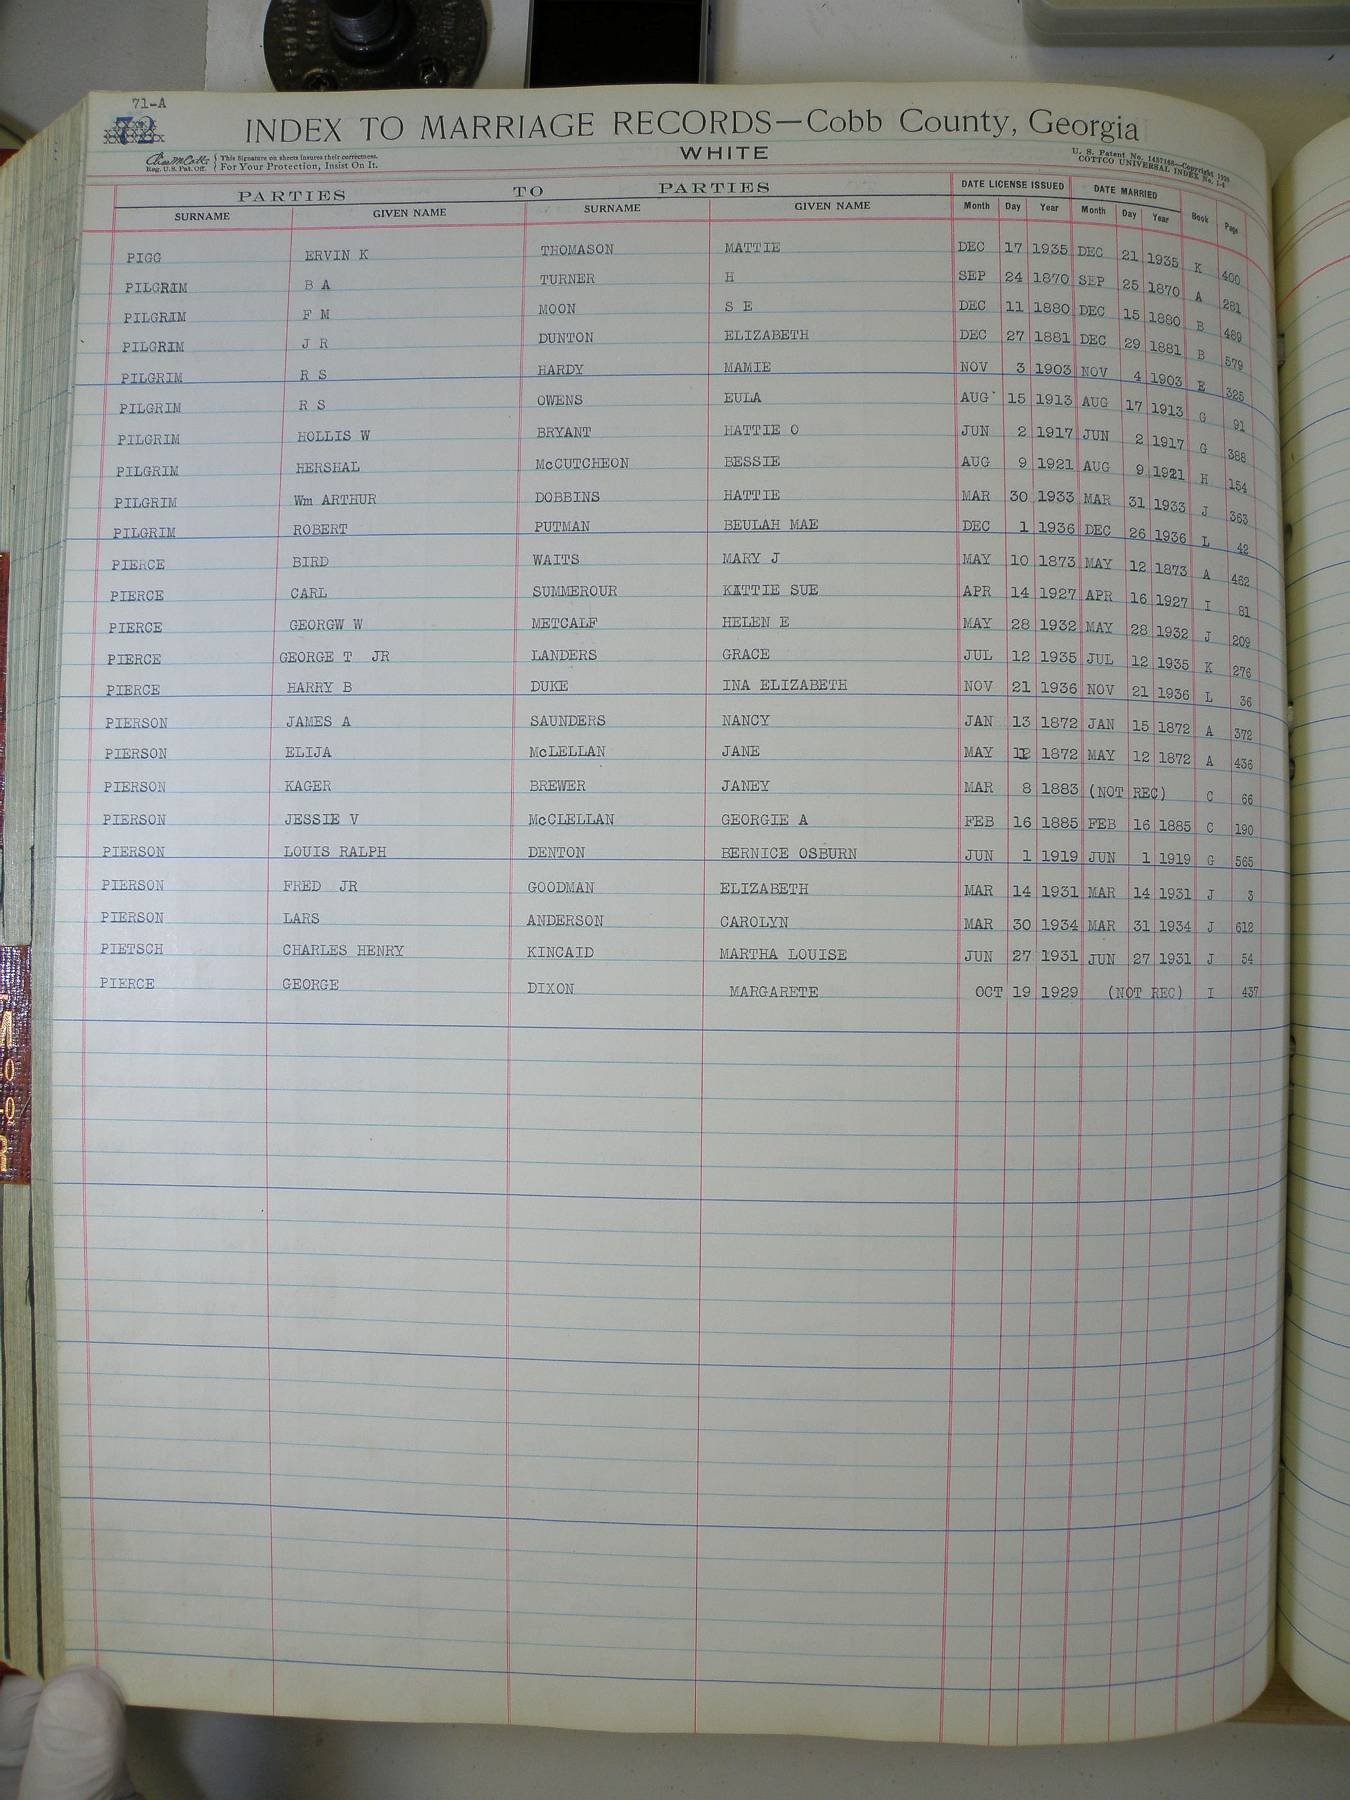 71-A
72
INDEX TO MARRIAGE RECORDS—Cobb County, Georgia
WHITE
Reg. U.S. Pat. Off. { This Signature on sheets insures their correctness. For Your Protection, Insist On It.
U. S. Patent No. 1457168—Copyright
COTTCO UNIVERSAL INDEX No. 1-4
PARTIES TO PARTIES DATE LICENSE ISSUED DATE MARRIED
SURNAME GIVEN NAME SURNAME GIVEN NAME Month Day Year Month Day Year Book Page
PIGG ERVIN K THOMASON MATTIE DEC 17 1935 DEC 21 1935 K 400
PILGRIM B A TURNER H SEP 24 1870 SEP 25 1870 A 281
PILGRIM F M MOON S E DEC 11 1880 DEC 15 1880 B 489
PILGRIM J R DUNTON ELIZABETH DEC 27 1881 DEC 29 1881 B 579
PILGRIM R S HARDY MAMIE NOV 3 1903 NOV 4 1903 E 325
PILGRIM R S OWENS EULA AUG 15 1913 AUG 17 1913 G 91
PILGRIM HOLLIS W BRYANT HATTIE O JUN 2 1917 JUN 2 1917 G 388
PILGRIM HERSHAL McCUTCHEON BESSIE AUG 9 1921 AUG 9 1921 H 154
PILGRIM Wm ARTHUR DOBBINS HATTIE MAR 30 1933 MAR 31 1933 J 363
PILGRIM ROBERT PUTMAN BEULAH MAE DEC 1 1936 DEC 26 1936 L 42
PIERCE BIRD WAITS MARY J MAY 10 1873 MAY 12 1873 A 482
PIERCE CARL SUMMEROUR KATTIE SUE APR 14 1927 APR 16 1927 I 81
PIERCE GEORGW W METCALF HELEN E MAY 28 1932 MAY 28 1932 J 209
PIERCE GEORGE T JR LANDERS GRACE JUL 12 1935 JUL 12 1935 K 276
PIERCE HARRY B DUKE INA ELIZABETH NOV 21 1936 NOV 21 1936 L 36
PIERSON JAMES A SAUNDERS NANCY JAN 13 1872 JAN 15 1872 A 372
PIERSON ELIJA McLELLAN JANE MAY 1872 MAY 12 1872 A 436
PIERSON KAGER BREWER JANEY MAR 8 1883 (NOT REC) C 66
PIERSON JESSIE V McCLELLAN GEORGIE A FEB 16 1885 FEB 16 1885 C 190
PIERSON LOUIS RALPH DENTON BERNICE OSBURN JUN 1 1919 JUN 1 1919 G 565
PIERSON FRED JR GOODMAN ELIZABETH MAR 14 1931 MAR 14 1931 J 3
PIERSON LARS ANDERSON CAROLYN MAR 30 1934 MAR 31 1934 J 612
PIETSCH CHARLES HENRY KINCAID MARTHA LOUISE JUN 27 1931 JUN 27 1931 J 54
PIERCE GEORGE DIXON MARGARETE OCT 19 1929 (NOT REC) I 437